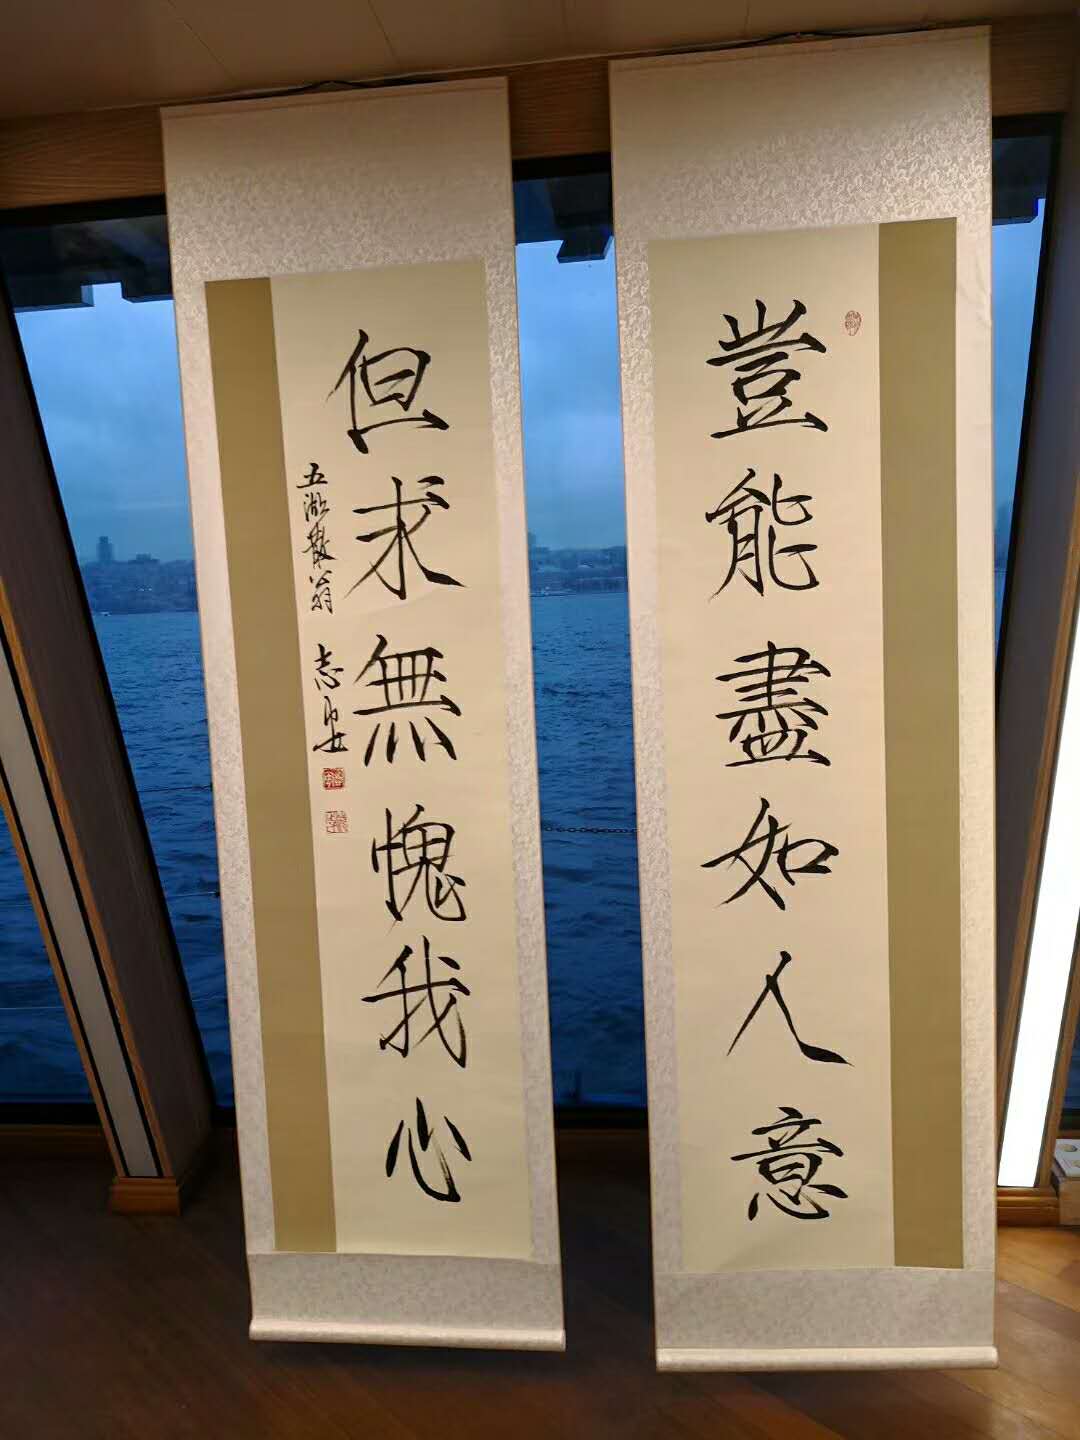 豈能盡如人意
但求無愧我心
五湖散翁